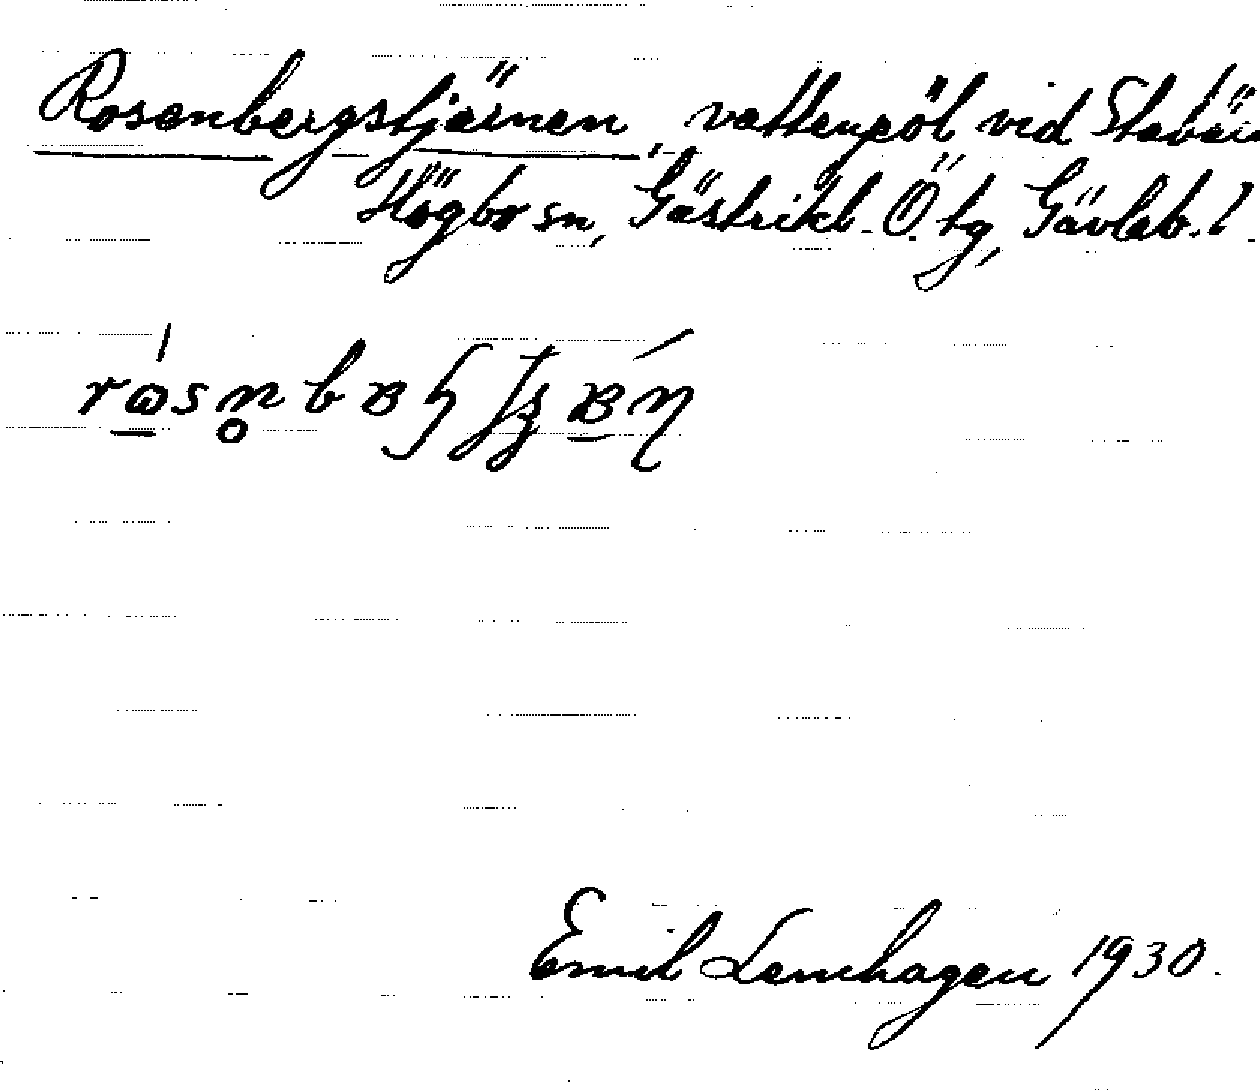 Rosenbergstjärnen, vattenpöl vid
Högbo sn, Gästrikl. Ö. tg, Gävleb. l.
Emil Lemhagen 1930.